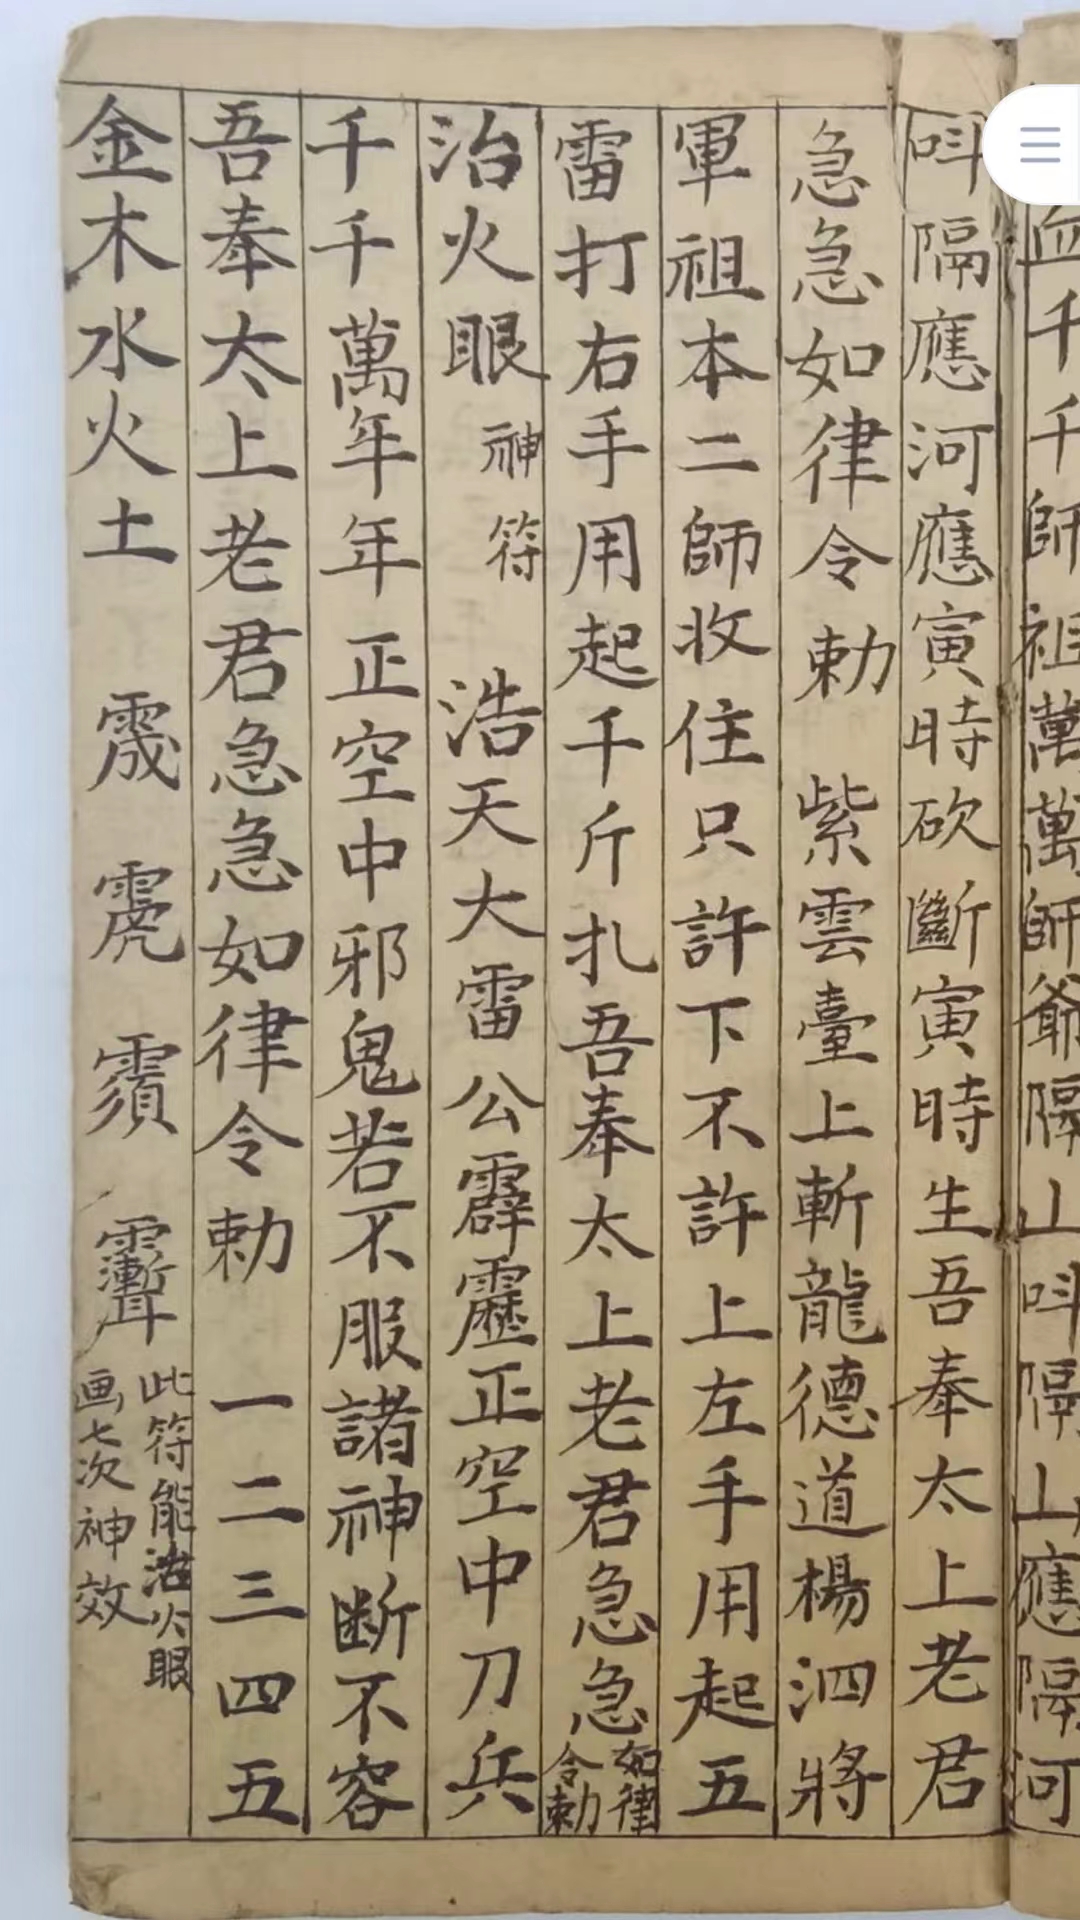 血千千師祖萬萬師爺隔山呌隔山應隔河
呌隔應河應寅時砍斷寅時生吾奉太上老君
急急如律令勅 紫雲臺上斬龍德道楊泗將
軍祖本二師收住只許下不許上左手用起五
雷打右手用起千斤扎吾奉太上老君急急如律令勅
治火眼神符 浩天大雷公霹靂正空中刀兵
千千萬年年正空中邪鬼若不服諸神断不容
吾奉太上老君急急如律令勅 一二三四五
金木水火土
此符能治火眼
画七次神效